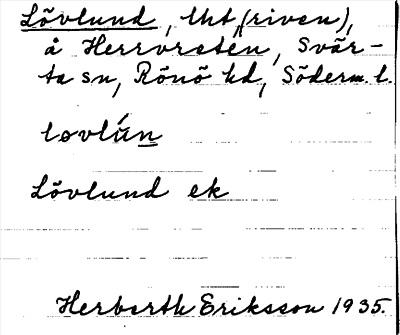 Lövlund, lht (riven),
å Herrvreten, Svär-
ta sn, Rönö hd, Söderm. l.
løvlún
Lövlund ek
Herbarth Eriksson 1935.